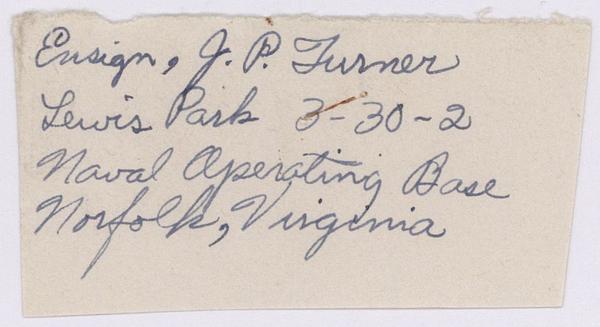 Ensign, J. P. Turner
Lewis Park 3-30-2
Naval Operating Base
Norfolk, Virginia